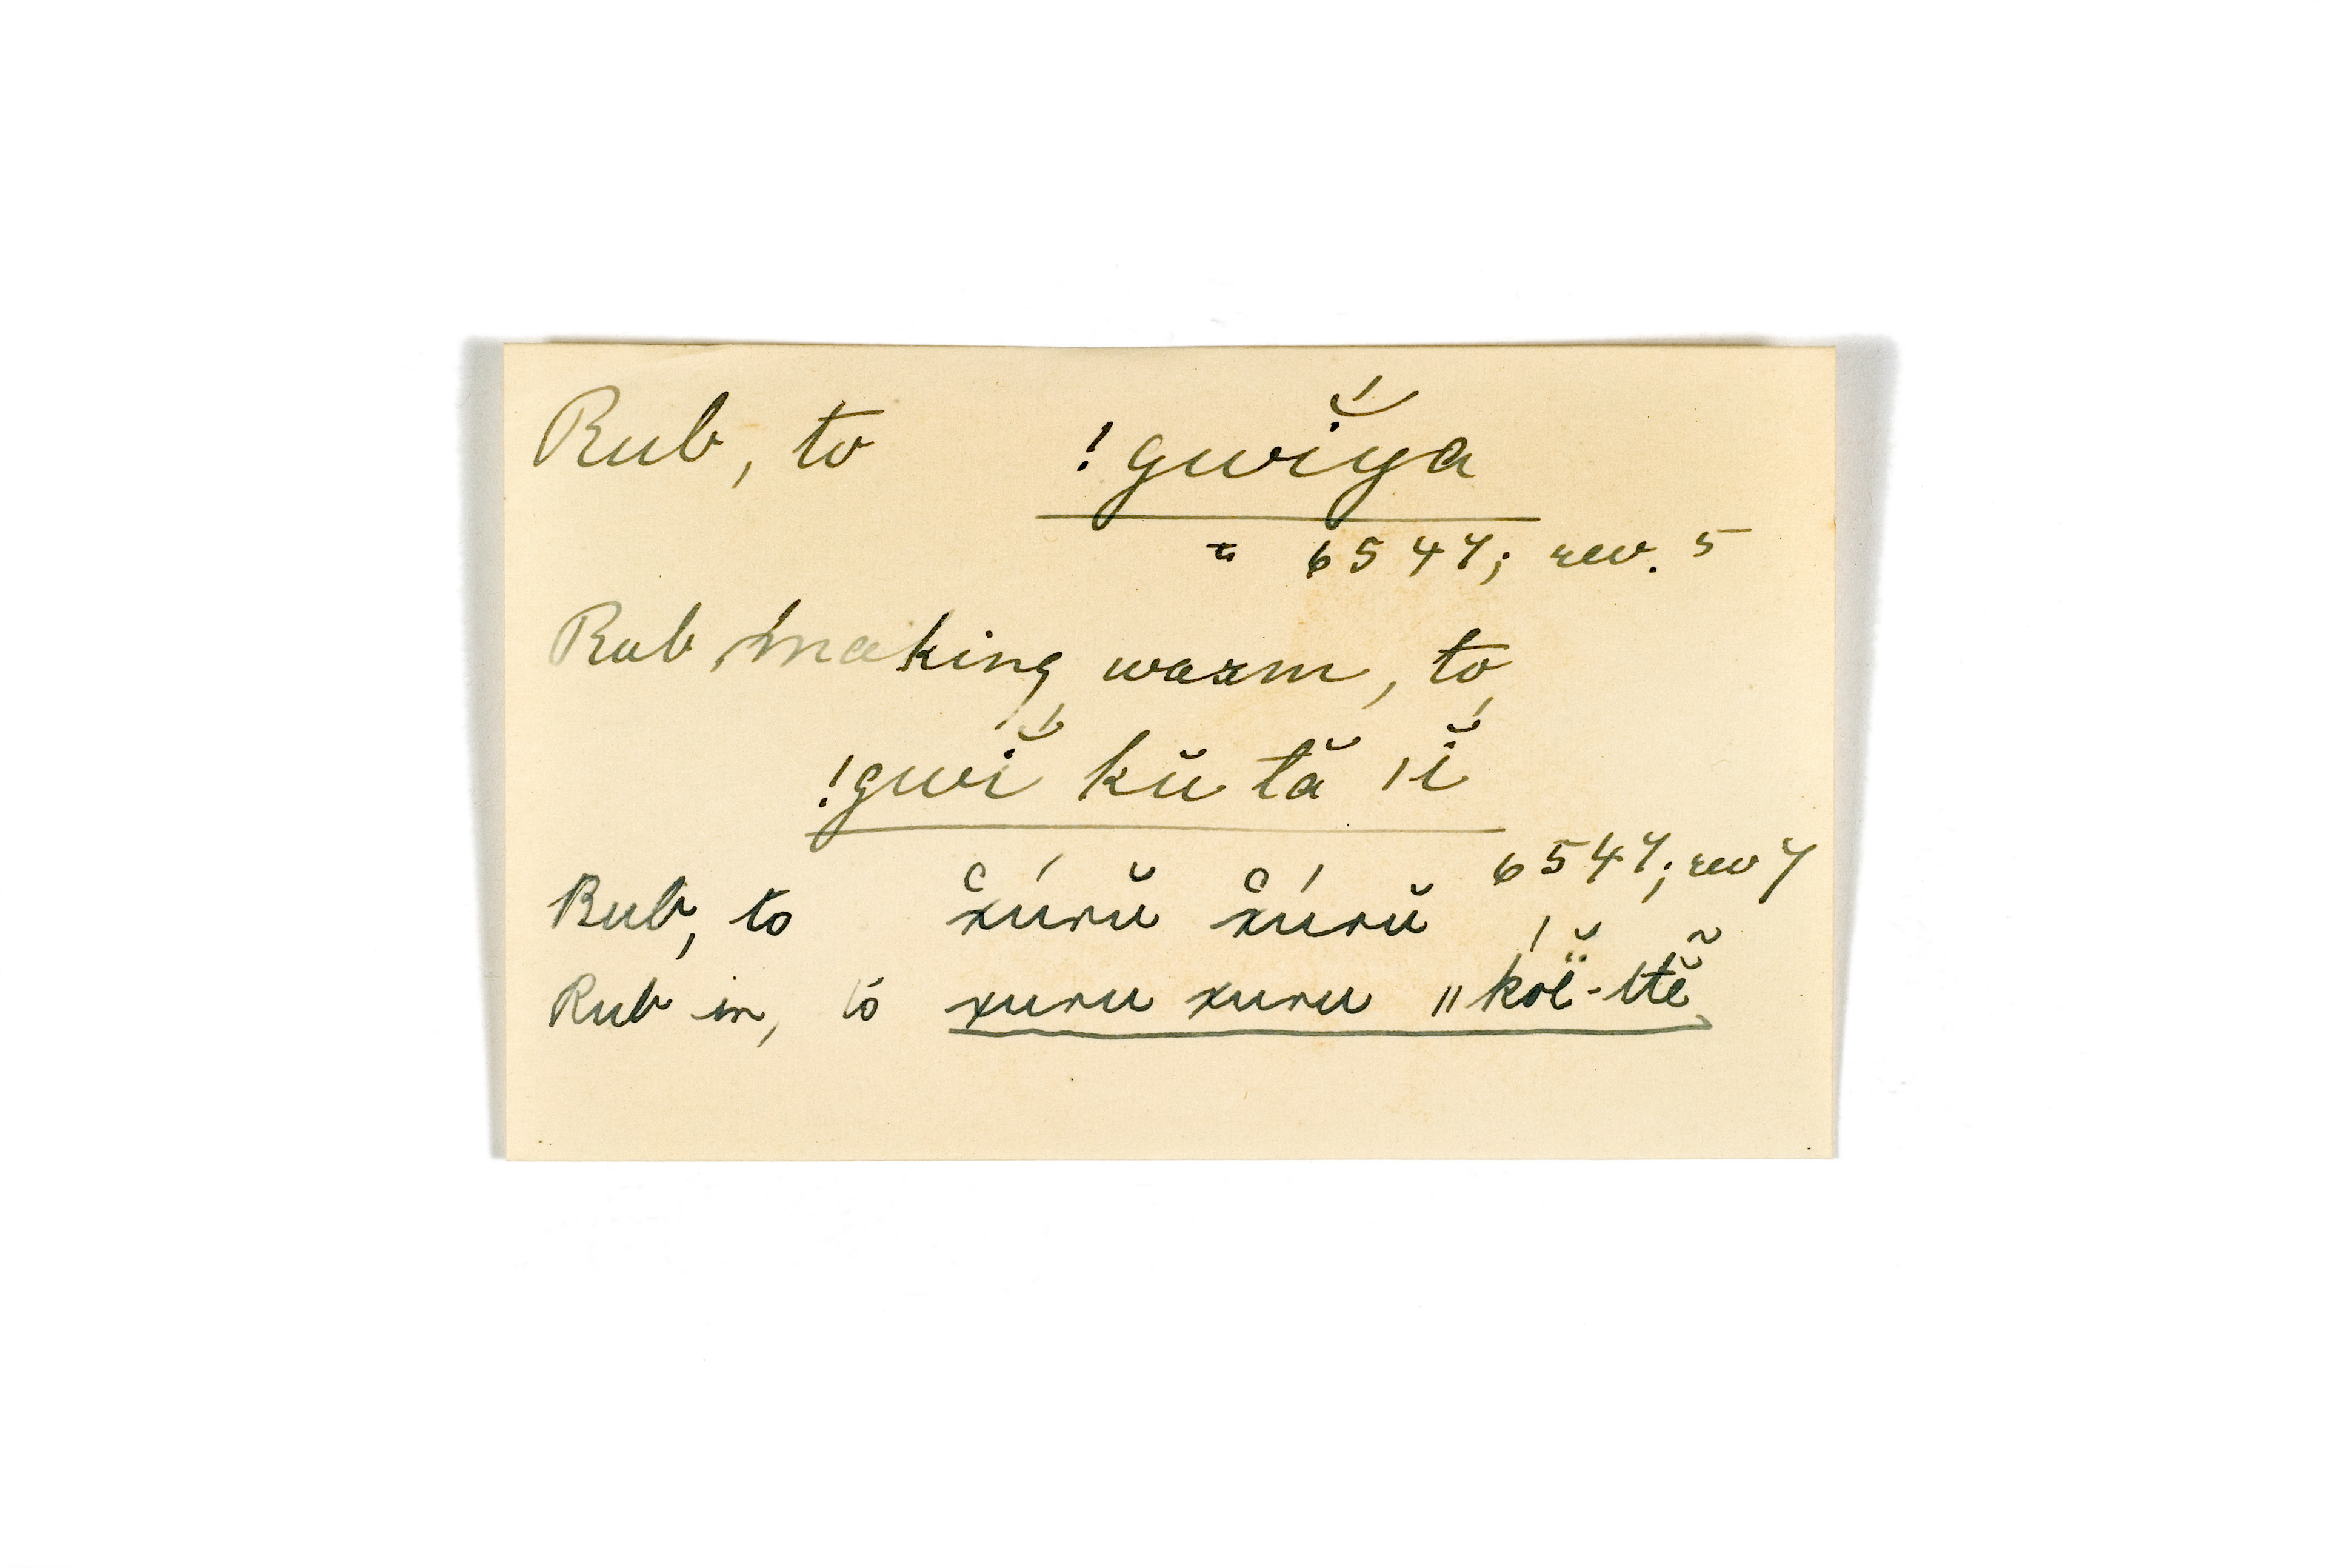 Rub, to !gwĭ́ya
= 6547; rev. 5
Rub, making warm, to
!gwĭ́ kŭ tă |ĭ́
6547; rev 7
Rub, to x̆úrŭ x̆úrŭ
Rub in, to xuru xuru ‖kóë̆-ttẽ